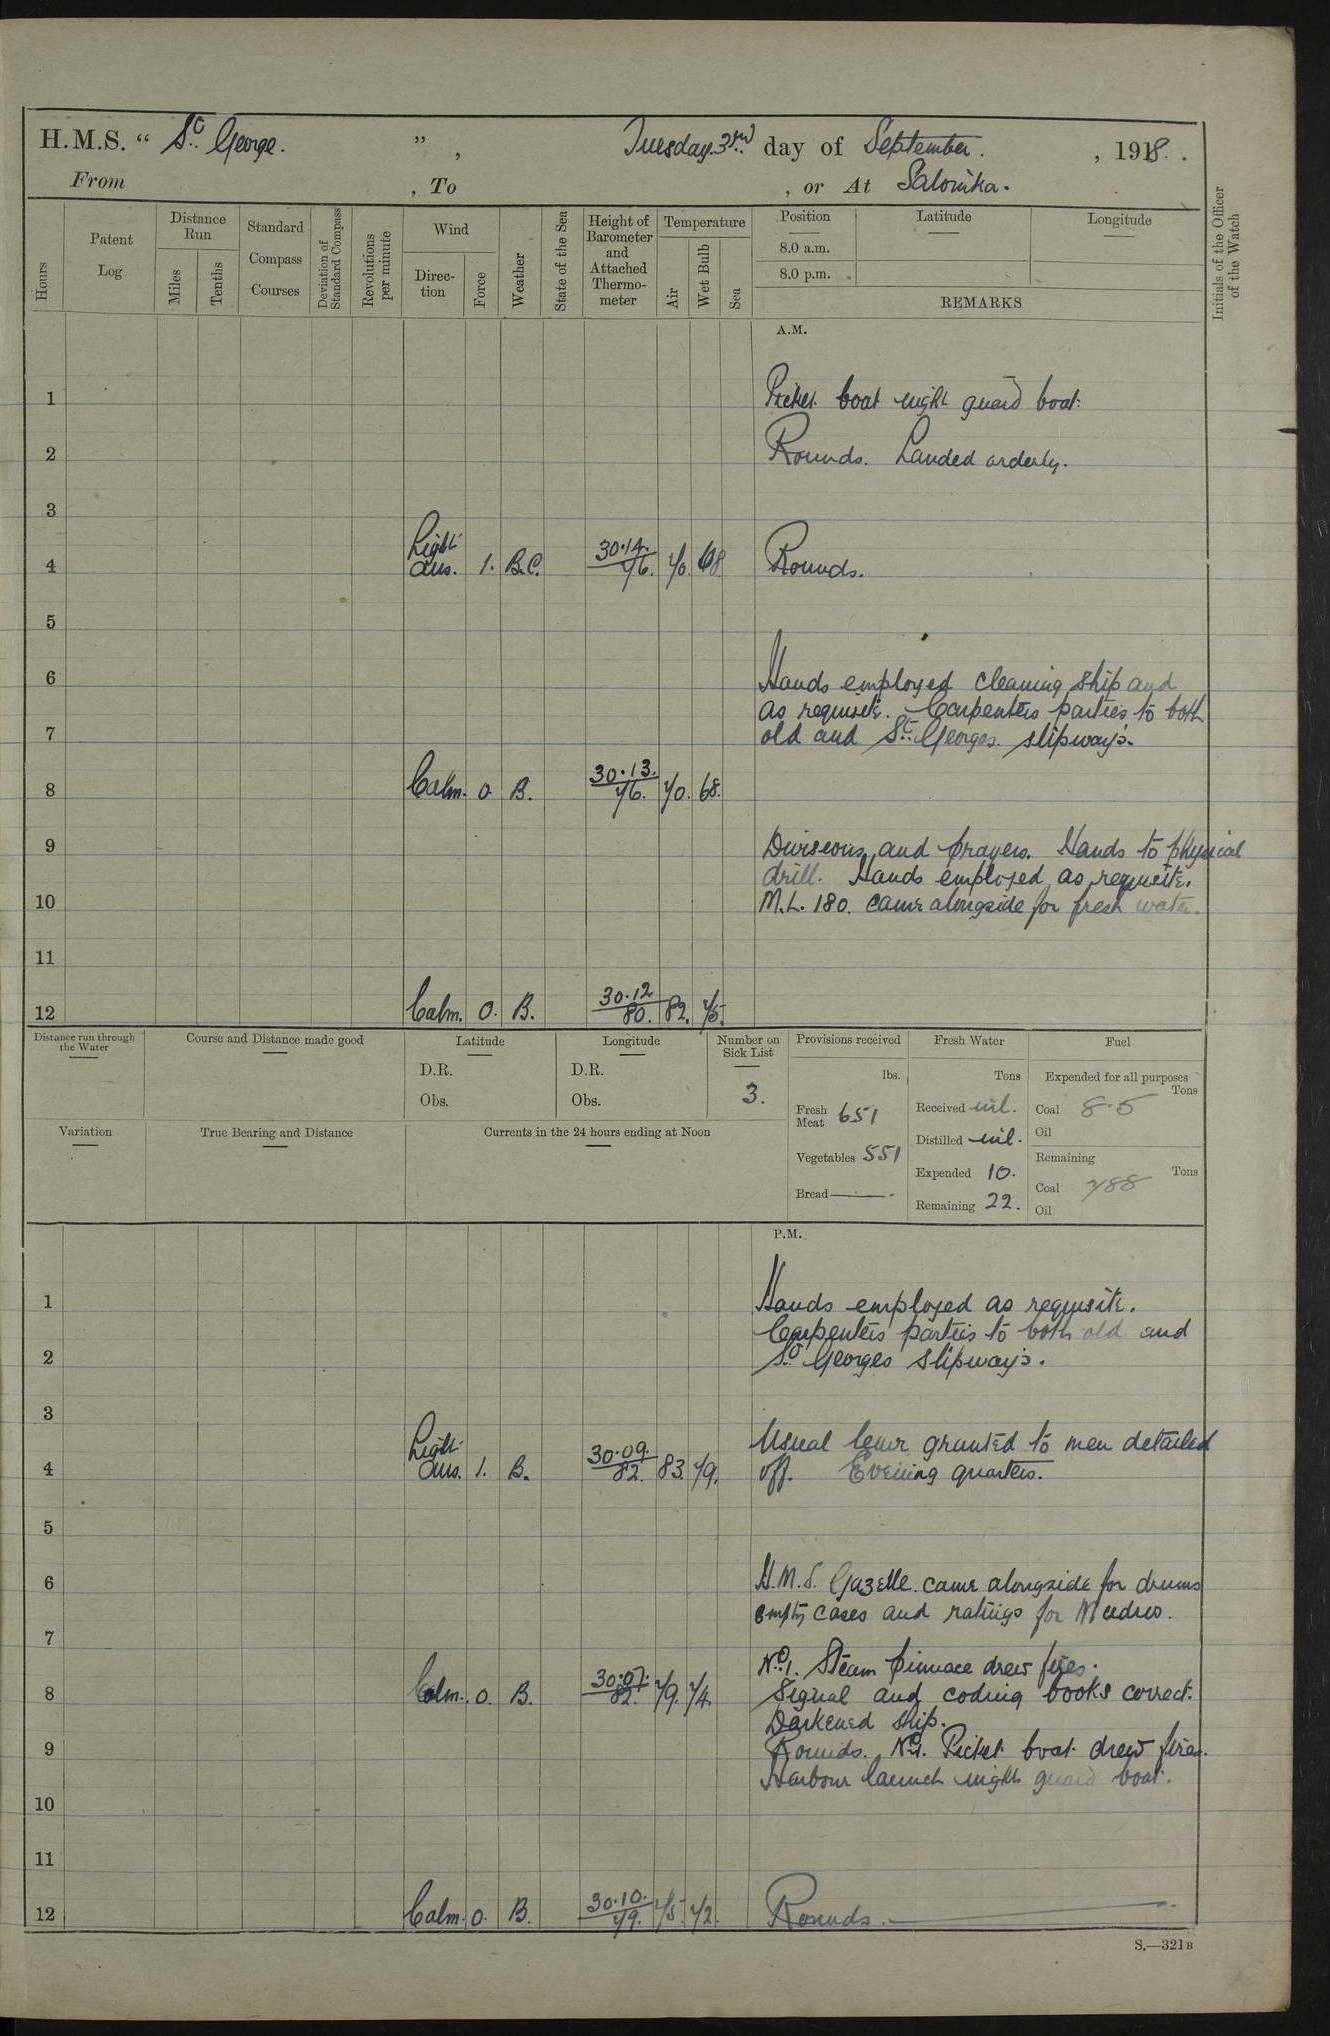 H.M.S. “ St George. ” , Tuesday 3rd day of September. , 1918.
From , To , or At Salonika.
Hours
Patent Log
Distance Run
Miles
Tenths
Standard Compass Courses
Deviation of Standard Compass
Revolutions per minute
Wind
Direction
Force
Weather
State of the Sea
Height of Barometer and Attached Thermometer
Temperature
Air
Wet Bulb
Sea
Position
8.0 a.m.
8.0 p.m.
Latitude
Longitude
REMARKS
Initials of the Officer of the Watch
A.M.
1 Picket boat night guard boat.
2 Rounds. Landed orderly.
3
Light 30.14.
4 airs. 1. B.C. 76. 70. 68. Rounds.
5
6 Hands employed cleaning ship and
as requisite. Carpenters parties to both
7 old and St Georges slipways.
30.13.
8 Calm. 0 B. 76. 70. 68.
9 Divisions and prayers. Hands to physical
drill. Hands employed as requisite.
10 M.L. 180. came alongside for fresh water.
11
30.12
12 Calm. 0. B. 80. 82. 75.
Distance run through the Water
Course and Distance made good
Latitude
D.R.
Obs.
Longitude
D.R.
Obs.
Number on Sick List
3.
Provisions received
lbs.
Fresh Meat 651
Vegetables 551
Bread ———
Fresh Water
Tons
Received nil.
Distilled nil.
Expended 10.
Remaining 22.
Fuel
Expended for all purposes
Tons
Coal 8.5
Oil
Remaining
Tons
Coal 788
Oil
Variation
True Bearing and Distance
Currents in the 24 hours ending at Noon
P.M.
1 Hands employed as requisite.
Carpenters parties to both old and
2 St Georges slipways.
3
Light 30.09. Usual leave granted to men detailed
4 airs. 1. B. 82. 83. 79. off. Evening quarters.
5
6 H.M.S. Gazelle came alongside for drums
empty cases and ratings for Mudros.
7
No 1. Steam pinnace drew fires.
30.07.
8 Calm. 0. B. 82. 79. 74. Signal and coding books correct.
Darkened ship.
9 Rounds. No 1. Picket boat drew fires.
Harbour launch night guard boat.
10
11
30.10.
12 Calm. 0. B. 79. 75. 72. Rounds.
S.—321B